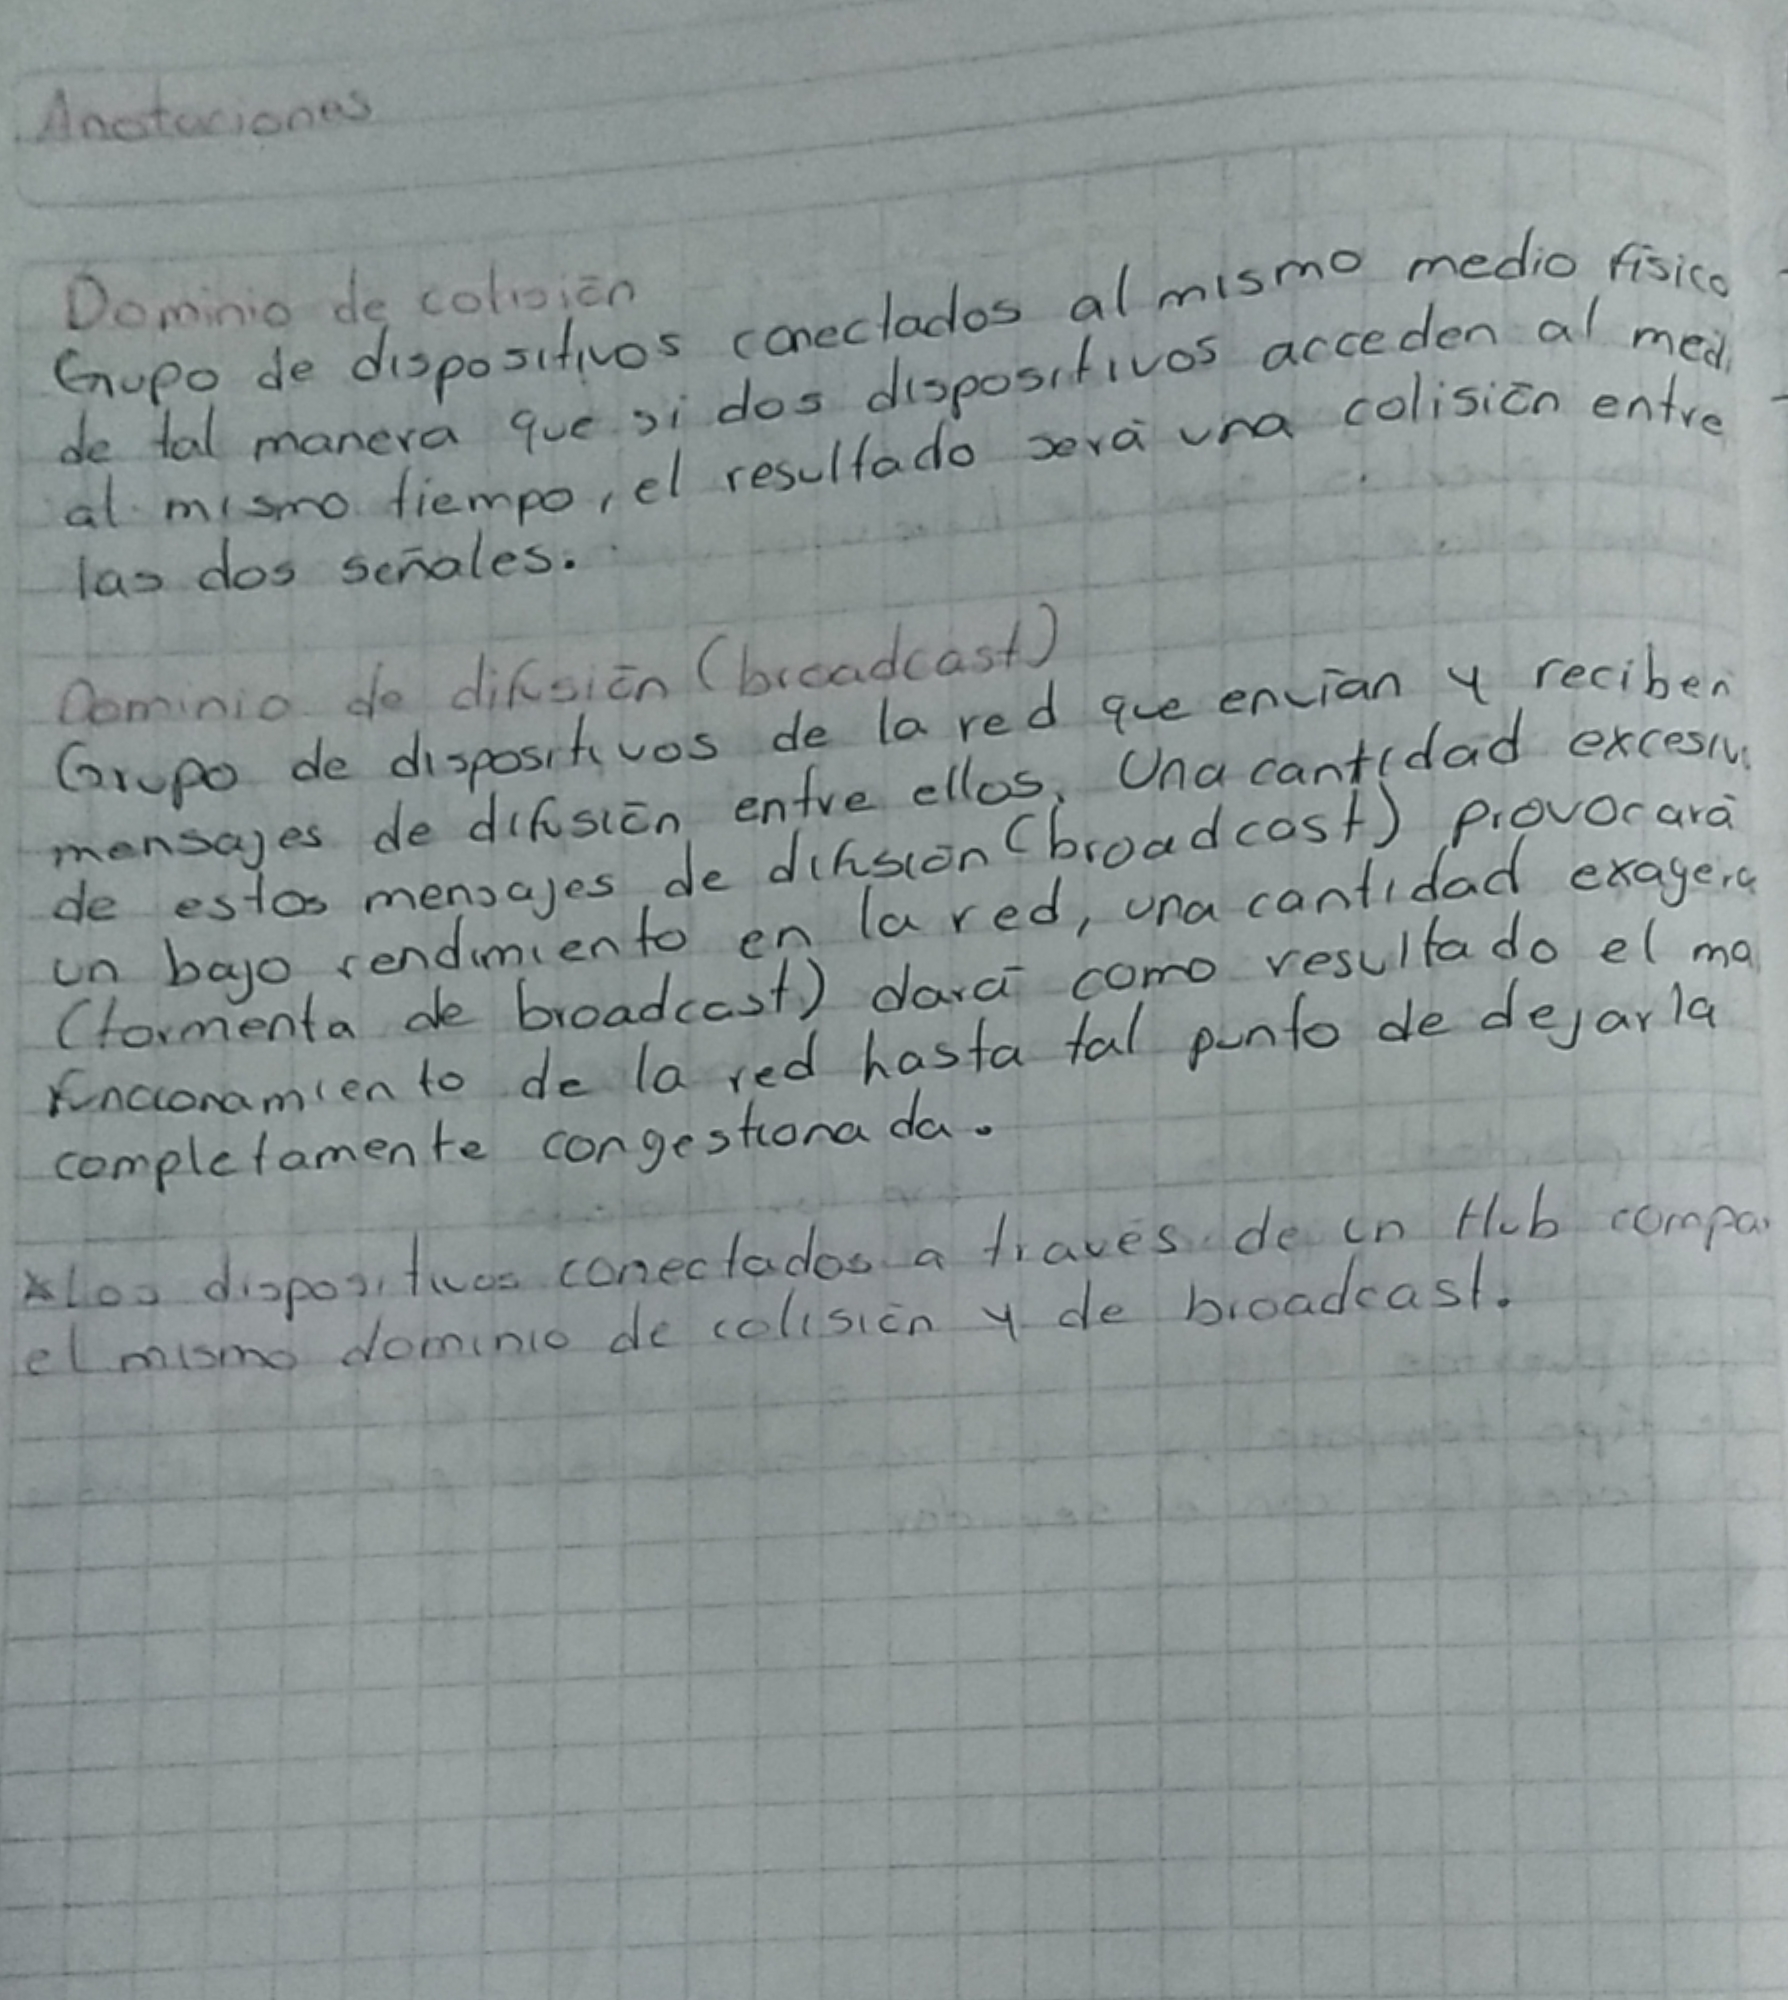 Anotaciones
Dominio de colisión
Grupo de dispositivos conectados al mismo medio físico
de tal manera que si dos dispositivos acceden al medi
al mismo tiempo, el resultado será una colisión entre
las dos señales.
Dominio de difusión (broadcast)
Grupo de dispositivos de la red que envían y reciben
mensajes de difusión entre ellos. Una cantidad excesiv
de estos mensajes de difusión (broadcast) provocará
un bajo rendimiento en la red, una cantidad exagera
(tormenta de broadcast) dará como resultado el ma
funcionamiento de la red hasta tal punto de dejarla
completamente congestionada.
*Los dispositivos conectados a través de un Hub compar
el mismo dominio de colisión y de broadcast.